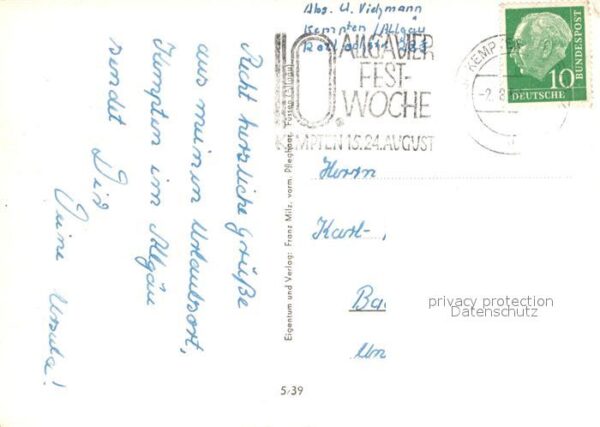 Abs. U. Viehmann
Kempten/Allgäu
10. ALLGÄUER
FEST-
WOCHE
KEMPTEN 15.24.AUGUST
KEMPTEN
-2.8
10
DEUTSCHE
BUNDESPOST
Recht herzliche Grüße
aus meinem Urlaubsort,
Kempten im Allgäu
sendet Dir
Deine Ursula!
Eigentum und Verlag: Franz Milz, vorm. Pfleghaar, Füssen
Herrn
Karl-
Ba
Un
privacy protection
Datenschutz
5/39